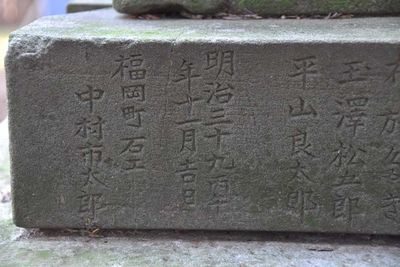 玉澤松五郎
平山良太郎
明治三十九
年十一月吉日
福岡町 石工
中村市太郎